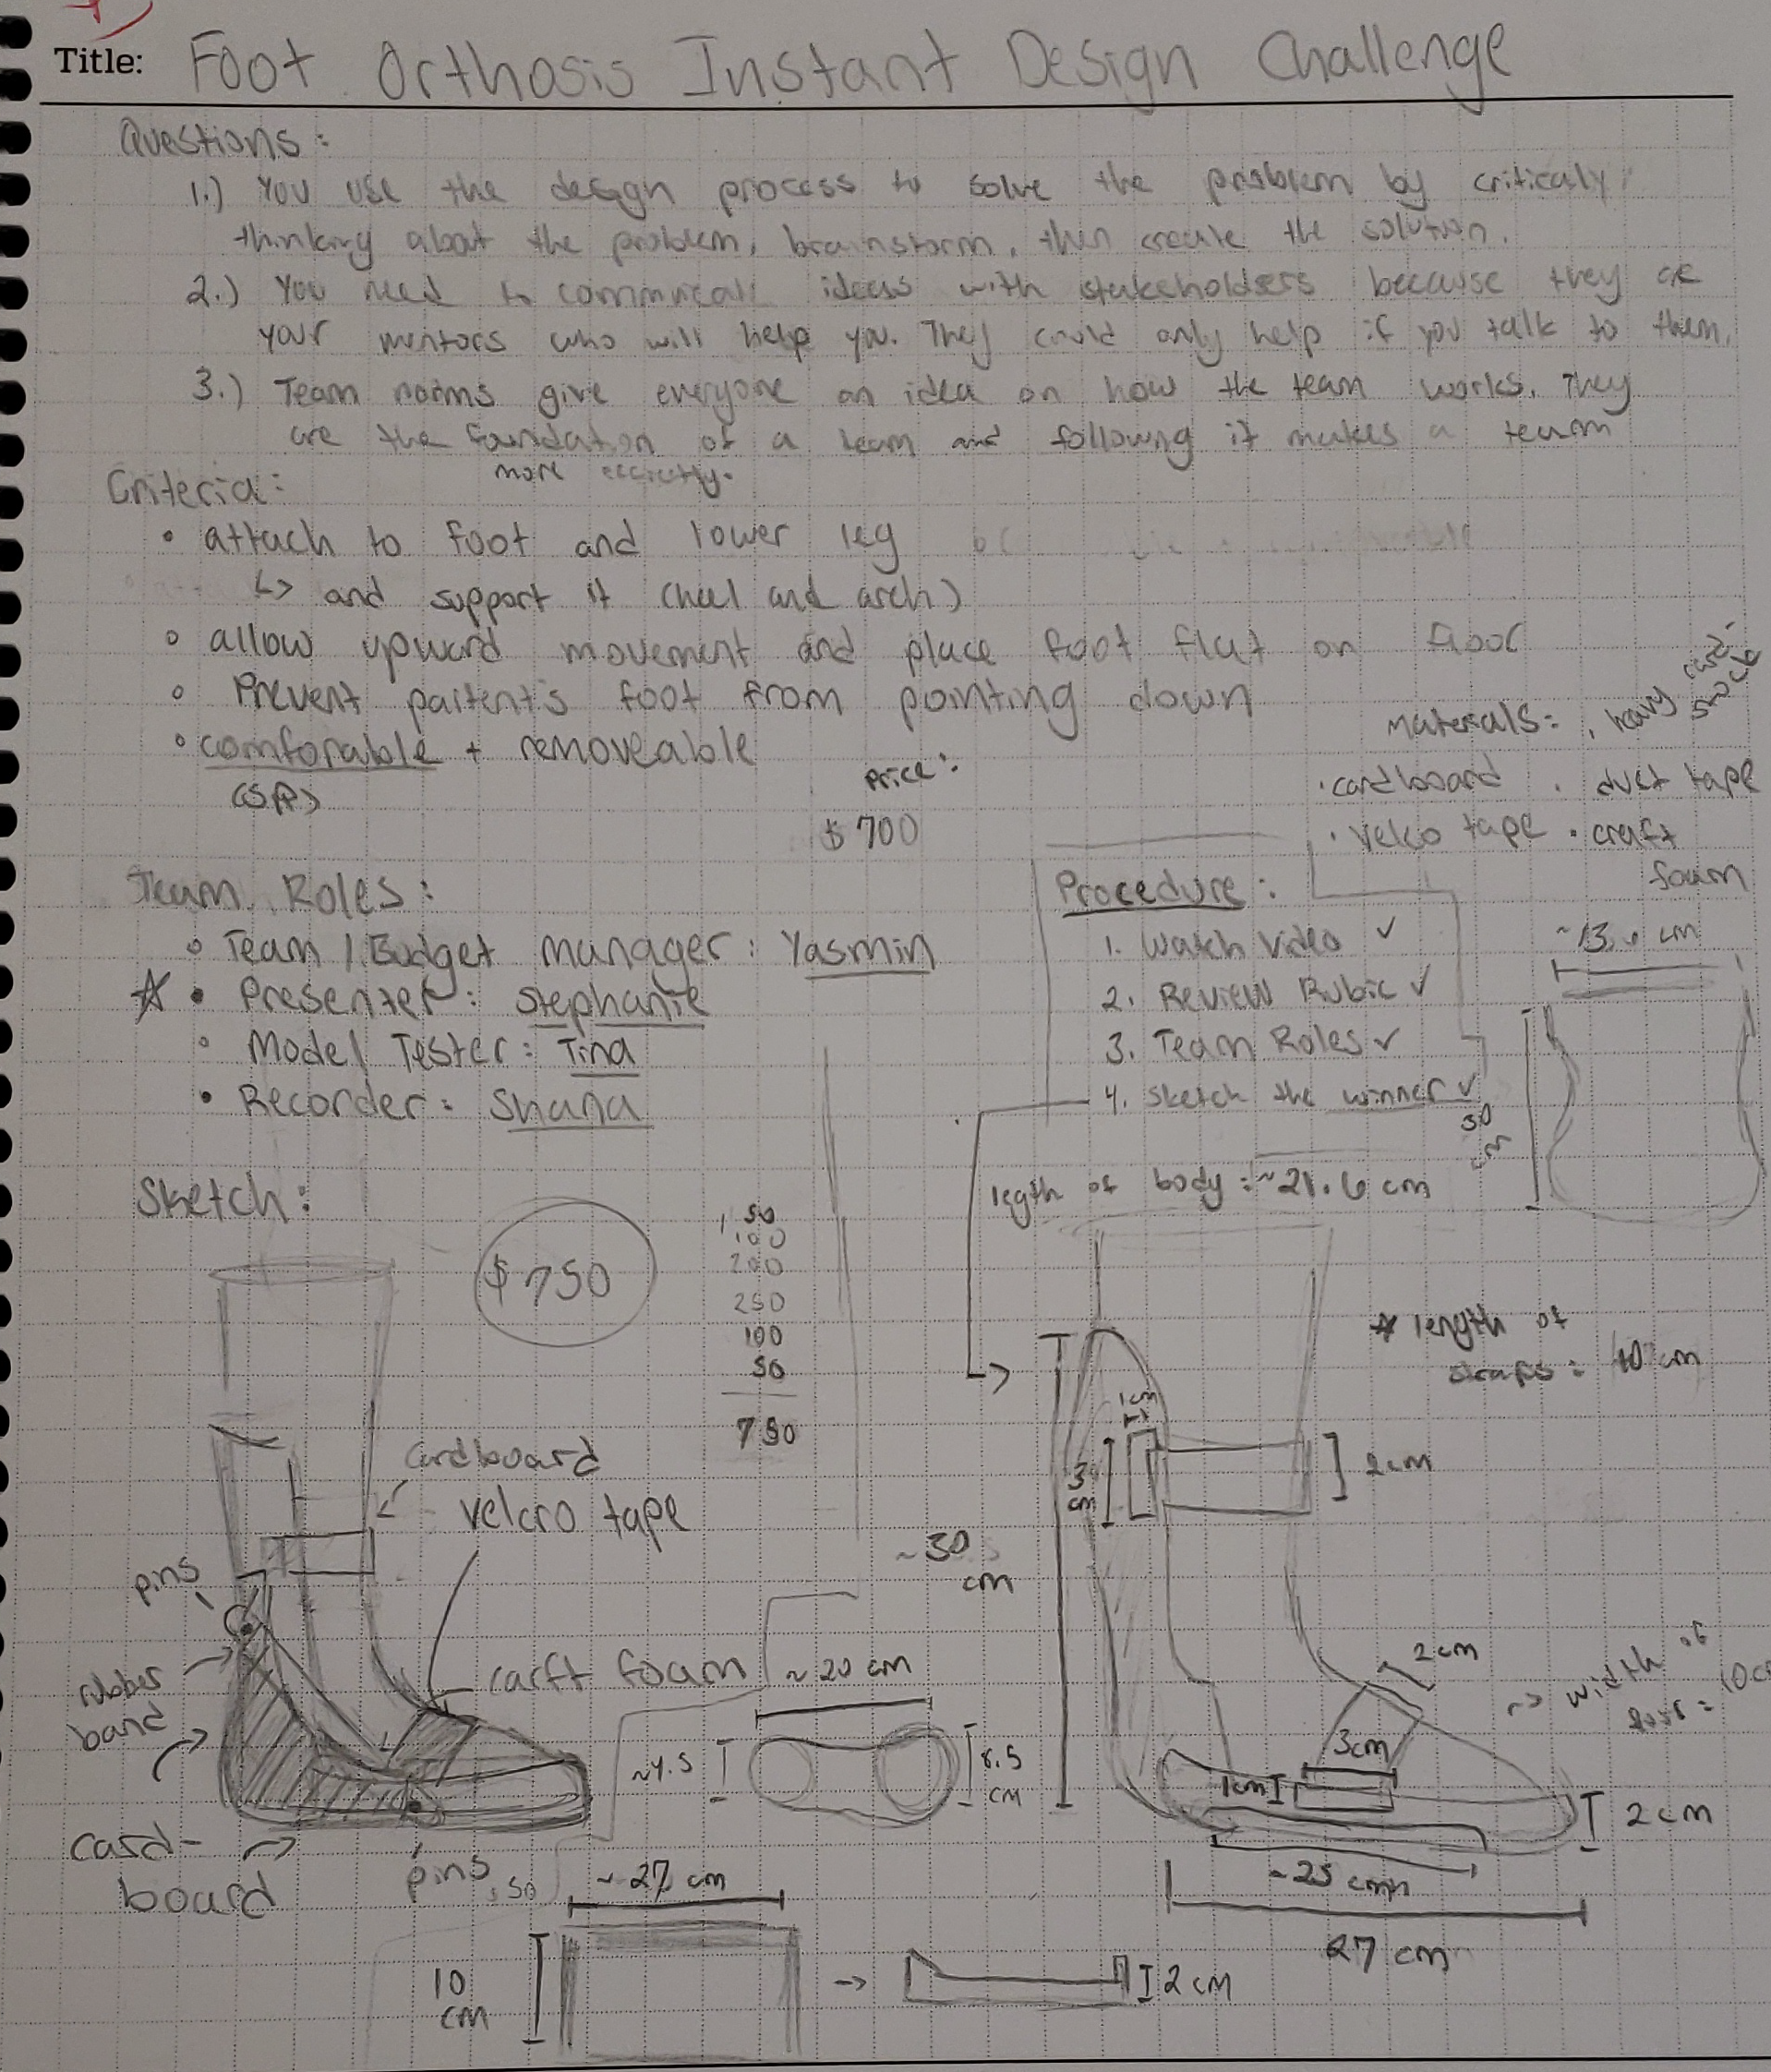 Title: Foot Orthosis Instant Design Challenge
Questions:
1.) You use the design process to solve the problem by criticaly
thinking about the problem, brainstorm, then create the solution.
2.) You need to communicate ideas with stakeholders because they are
your mentors who will help you. They could only help if you talk to them.
3.) Team norms give everyone an idea on how the team works. They
are the foundation of a team and following it makes a team
more
Criteria:
• attach to foot and lower leg
↳ and support it (heel and arch)
• allow upward movement and place foot flat on floor
• Prevent paitent's foot from pointing down
• comforable + removeable
Price:
$700
Materials: • heavy card-
stock
• cardboard • duct tape
• velco tape • craft
foam
Team Roles:
• Team / Budget manager: Yasmin
☆ • Presenter: Stephanie
• Model Tester: Tina
• Recorder: Shana
Procedure:
1. Watch Video ✓
2. Review Rubic ✓
3. Team Roles ✓
4. Sketch the winner ✓
50
cm
legth of body: ~21.6 cm
Sketch:
$750
50
100
200
250
100
50
750
* length of
straps: 10 cm
1cm
3
cm
2cm
~30
cm
Cardboard
velcro tape
pins
rubber
band
carft foam
card-
board
pins
~20 cm
~4.5
8.5
cm
2cm
~> width of
3cm
1cm
2cm
~25 cm
27 cm
~27 cm
10
cm
-> 2 cm